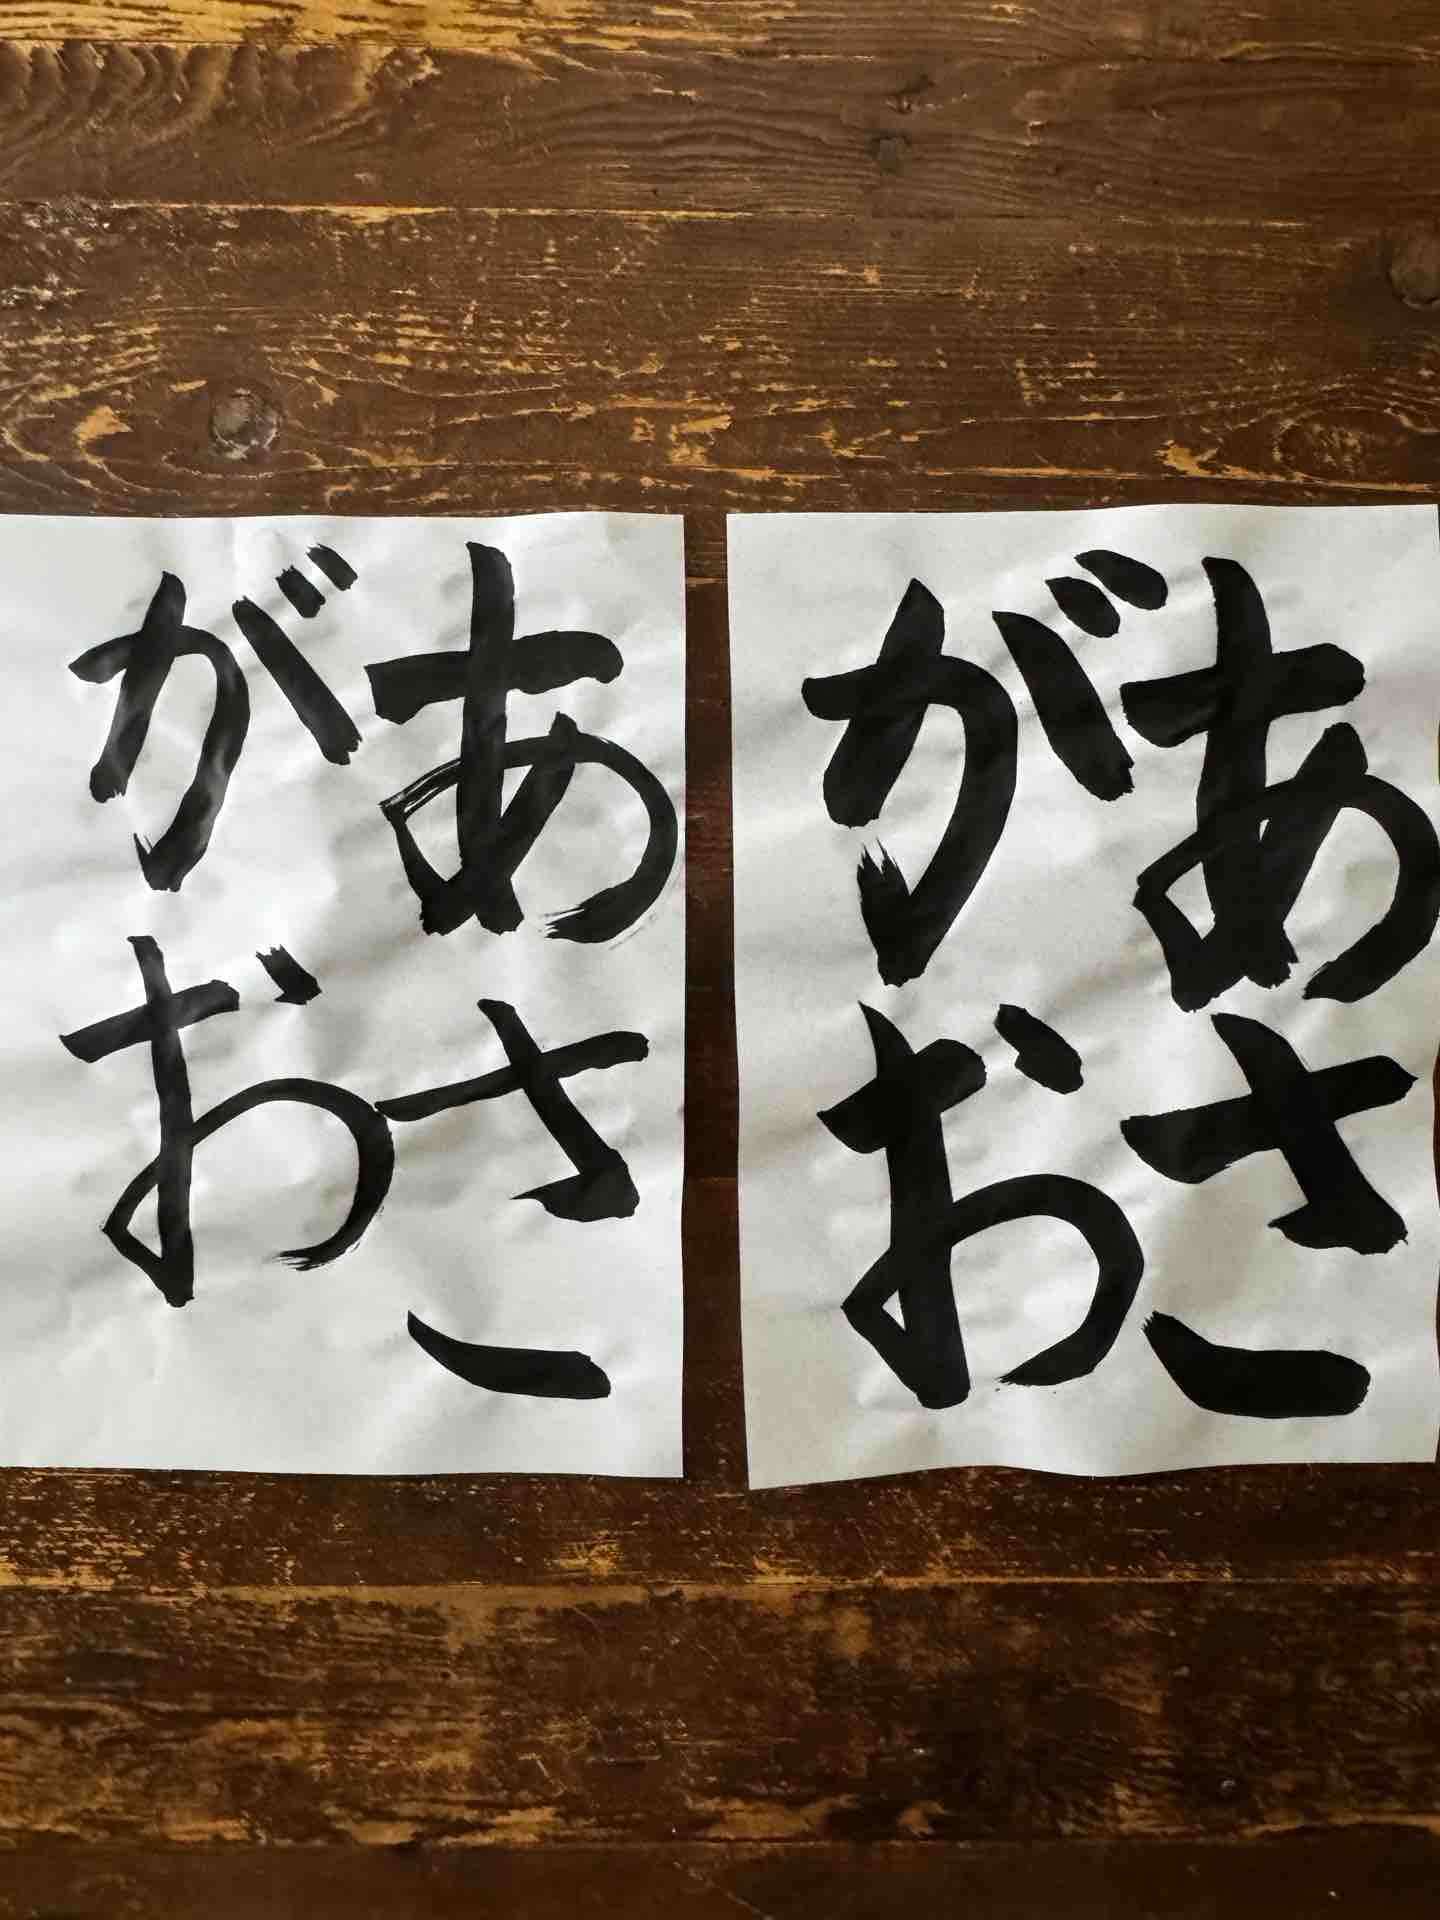 あさ
がお
あさ
がお